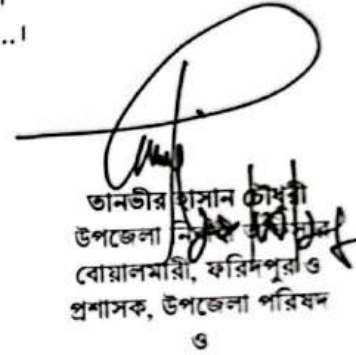 ..।
তানভীর হাসান চৌধুরী
উপজেলা
বোয়ালমারী, ফরিদপুর ও
প্রশাসক, উপজেলা পরিষদ
ও